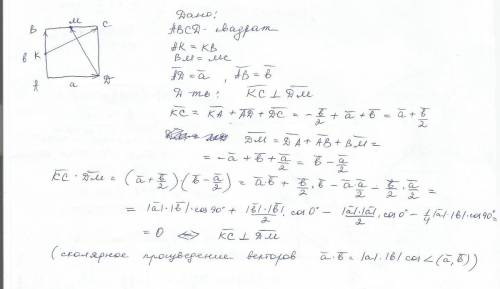 B M C
K
b
A a D
Дано:
ABCD - квадрат
AK = KB
BM = MC
A̅D̅ = a̅ , A̅B̅ = b̅
Д-ть: K̅C̅ ⊥ D̅M̅
K̅C̅ = K̅A̅ + A̅D̅ + D̅C̅ = - b̅/2 + a̅ + b̅ = a̅ + b̅/2
D̅M̅ = D̅A̅ + A̅B̅ + B̅M̅ =
= - a̅ + b̅ + a̅/2 = b̅ - a̅/2
K̅C̅ · D̅M̅ = (a̅ + b̅/2)(b̅ - a̅/2) = a̅b̅ + b̅/2 · b̅ - a̅ a̅/2 - b̅/2 · a̅/2 =
= |a̅|·|b̅|·cos 90° + |b̅|·|b̅|/2 · cos 0° - |a̅|·|a̅|/2 · cos 0° - 1/4 |a̅|·|b̅| cos 90° =
= 0 ⇔ K̅C̅ ⊥ D̅M̅
(скалярное произведение векторов a̅·b̅ = |a|·|b| cos∠(a̅, b̅))